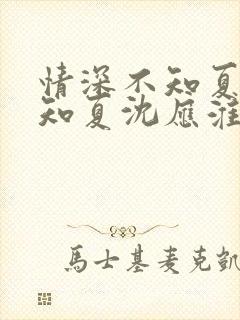 情深不知夏
知夏沈應淮
馬士基麥克凱